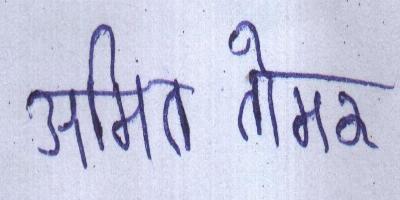 अमित तोमर